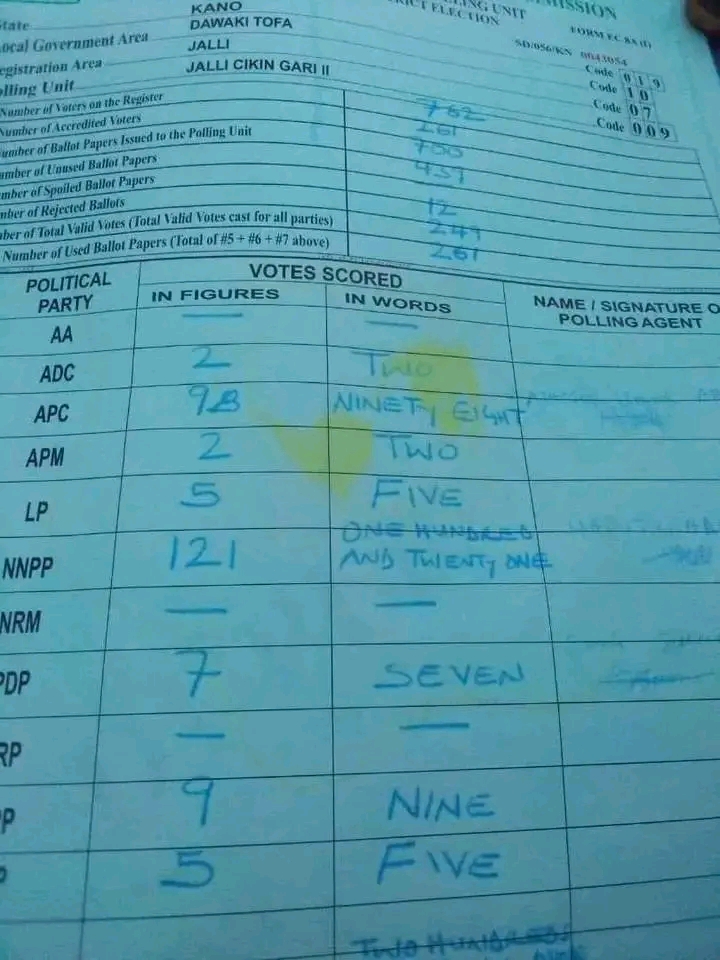 MISSION
LING UNIT
RICT ELECTION
FORM EC 8A (I)
SD/056/KN 0043054
State KANO Code 0 1 9
Local Government Area DAWAKI TOFA Code 1 0
Registration Area JALLI Code 0 7
olling Unit JALLI CIKIN GARI II Code 0 0 9
Number of Voters on the Register 762
Number of Accredited Voters 261
umber of Ballot Papers Issued to the Polling Unit 700
umber of Unused Ballot Papers 439
mber of Spoiled Ballot Papers
mber of Rejected Ballots 12
ber of Total Valid Votes (Total Valid Votes cast for all parties) 249
Number of Used Ballot Papers (Total of #5 + #6 + #7 above) 261
POLITICAL PARTY
VOTES SCORED
IN FIGURES
IN WORDS
NAME / SIGNATURE O
POLLING AGENT
AA — —
ADC 2 TWO
APC 98 NINETY EIGHT
APM 2 TWO
LP 5 FIVE
NNPP 121 ONE HUNDRED
AND TWENTY ONE
NRM — —
PDP 7 SEVEN
RP — —
P 9 NINE
5 FIVE
TWO HUNDRED